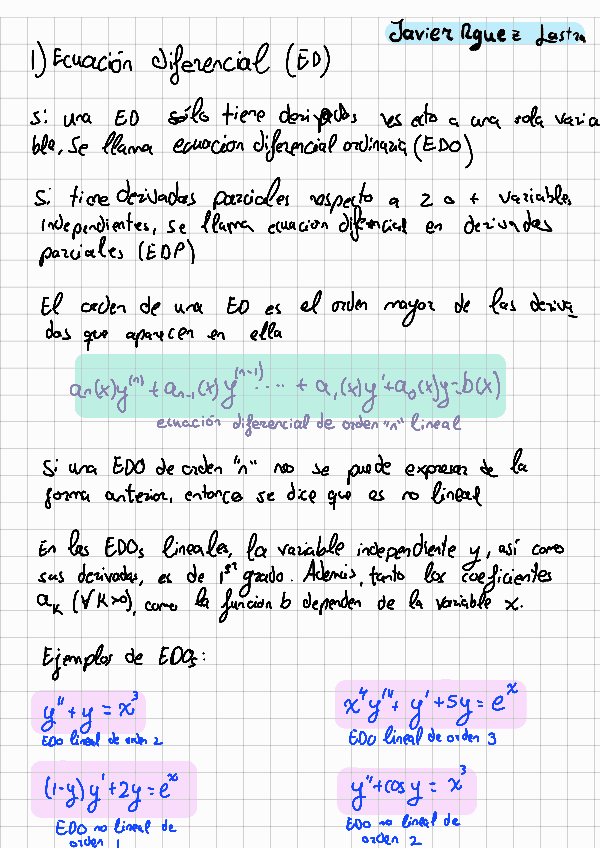 Javier Rguez Lastra
1) Ecuación diferencial (ED)
Si una ED sólo tiene derivadas respecto a una sola varia
ble, se llama ecuacion diferencial ordinaria (EDO)
Si tiene derivadas parciales respecto a 2 o + variables
independientes, se llama ecuacion diferencial en derivadas
parciales (EDP)
El orden de una ED es el orden mayor de las deriva
das que aparecen en ella
aₙ(x)y⁽ⁿ⁾ + aₙ₋₁(x) y⁽ⁿ⁻¹⁾ ..... + a₁(x)y' + a₀(x)y = b(x)
ecuación diferencial de orden "n" lineal
Si una EDO de orden "n" no se puede expresar de la
forma anterior, entonces se dice que es no lineal
En las EDOs lineales, la variable independiente y, así como
sus derivadas, es de 1ᵉʳ grado. Además, tanto los coeficientes
aₖ (∀K>0), como la función b dependen de la variable x.
Ejemplos de EDOs:
y'' + y = x³
EDO lineal de orden 2
x⁴y''' + y' + 5y = eˣ
EDO lineal de orden 3
(1-y) y' + 2y = eˣ
EDO no lineal de
orden 1
y'' + cos y = x³
EDO no lineal de
orden 2